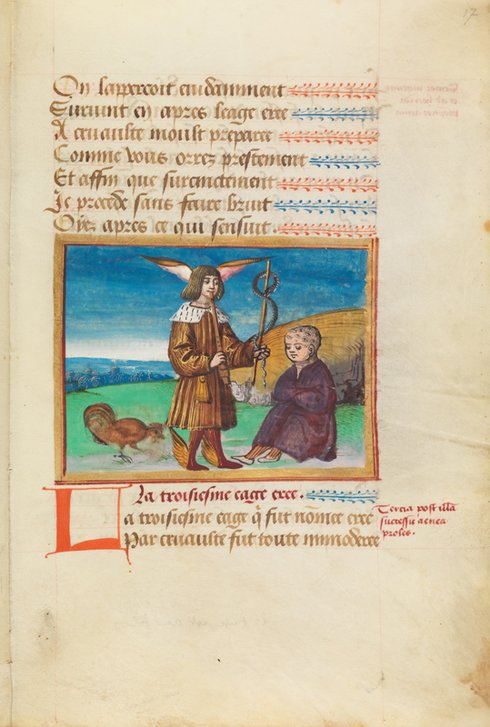 17
On lapperçoit euidamment
Suruint en apres leage ere
A cruaulte moult preparee
Comme vous orrez prestement
Et affin que surcinctement
Je procede sans faire bruit
Oyez apres ce qui sensuit.
La troisiesme eage eree.
La troisiesme eage q̃ fut nõmee eree
Par cruaulte fut toute immoderee
Tercia post illã
successit aenea
proles.